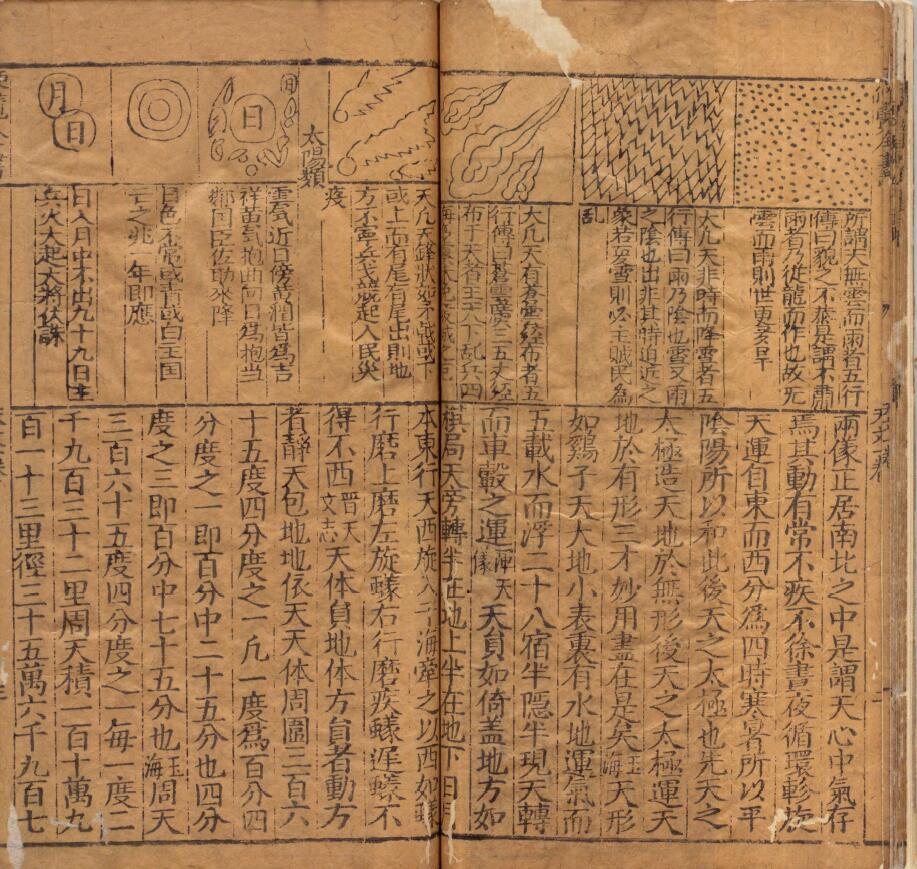 所謂天無雲而雨者五行
傳曰貌之不恭是謂不肅
雨者乃從龍而作也故无
雲而雨則世更多旱
大凡天非時而降雪者五
行傳曰雨乃陰也雪又雨
之陰也出非其時迫近之
象若夏雪則必主賊民為
乱
大凡天有蒼雲經布者五
行傳曰蒼雲廣三五丈經
布于天者主天下乱兵四
天凡天鋒狀如
或上而有尾有尾出則地
方不寧兵戈競起人民災
疫
太陽類
日
日
雲氣近日傍黃潤皆爲吉
祥黃氣抱曲向日爲抱當
鄰国臣佐助來降
日色不常或青或白王国
亡之兆一年即應
月
日
日入月中不出九十九日主
兵火大起大將伏誅
兩儀正居南北之中是謂天心中氣存
焉其動有常不疾不徐晝夜循環軫旋
天運自東而西分爲四時寒暑所以平
陰陽所以和此後天之太極也先天之
太極造天地於無形後天之太極運天
地於有形三才妙用盡在是矣玉海天形
如鷄子天大地小表裏有水地運氣而
五載水而浮二十八宿半隱半現天轉
而車轂之運渾天儀天員如倚盖地方如
棋局天旁轉半在地上半在地下日月
本東行天西旋入于海牽之以西如蟻
行磨上磨左旋蟻右行磨疾蟻遲蟻不
得不西晋天文志天体員地体方員者動方
者靜天包地地依天天体周圍三百六
十五度四分度之一凡一度爲百分四
分度之一即百分中二十五分也四分
度之三即百分中七十五分也玉海周天
三百六十五度四分度之一每一度二
千九百三十二里周天積一百十萬九
百一十三里徑三十五萬六千九百七